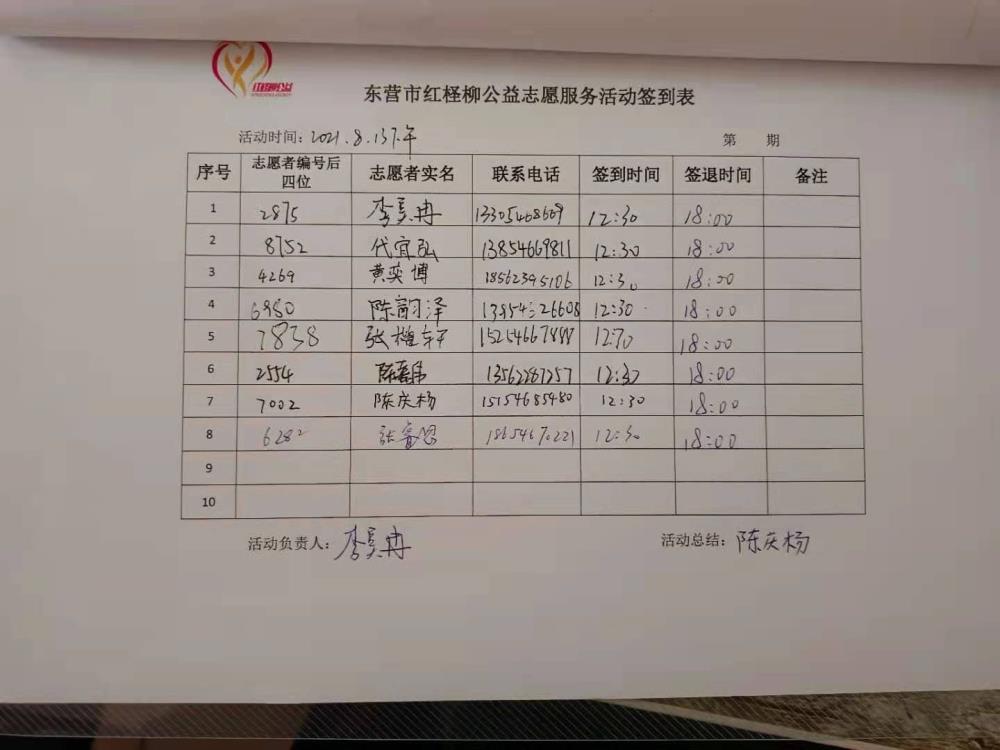 东营市红柽柳公益志愿服务活动签到表
活动时间：2021.8.13下午 第 期
序号 志愿者编号后四位 志愿者实名 联系电话 签到时间 签退时间 备注
1 2875 李昊冉 13305468609 12:30 18:00
2 8752 代宜弘 13854669811 12:30 18:00
3 4269 黄奕博 18562395106 12:30 18:00
4 6980 陈韵泽 12:30 18:00
5 7838 18:00
6 2554 13562287257 12:30 18:00
7 7002 陈庆杨 15154685480 12:30 18:00
8 6282 18654670221 12:30 18:00
9
10
活动负责人：李昊冉 活动总结：陈庆杨